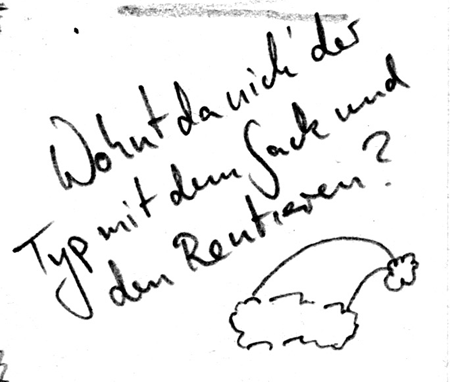 Wohnt da nich' der
Typ mit dem Sack und
den Rentieren?